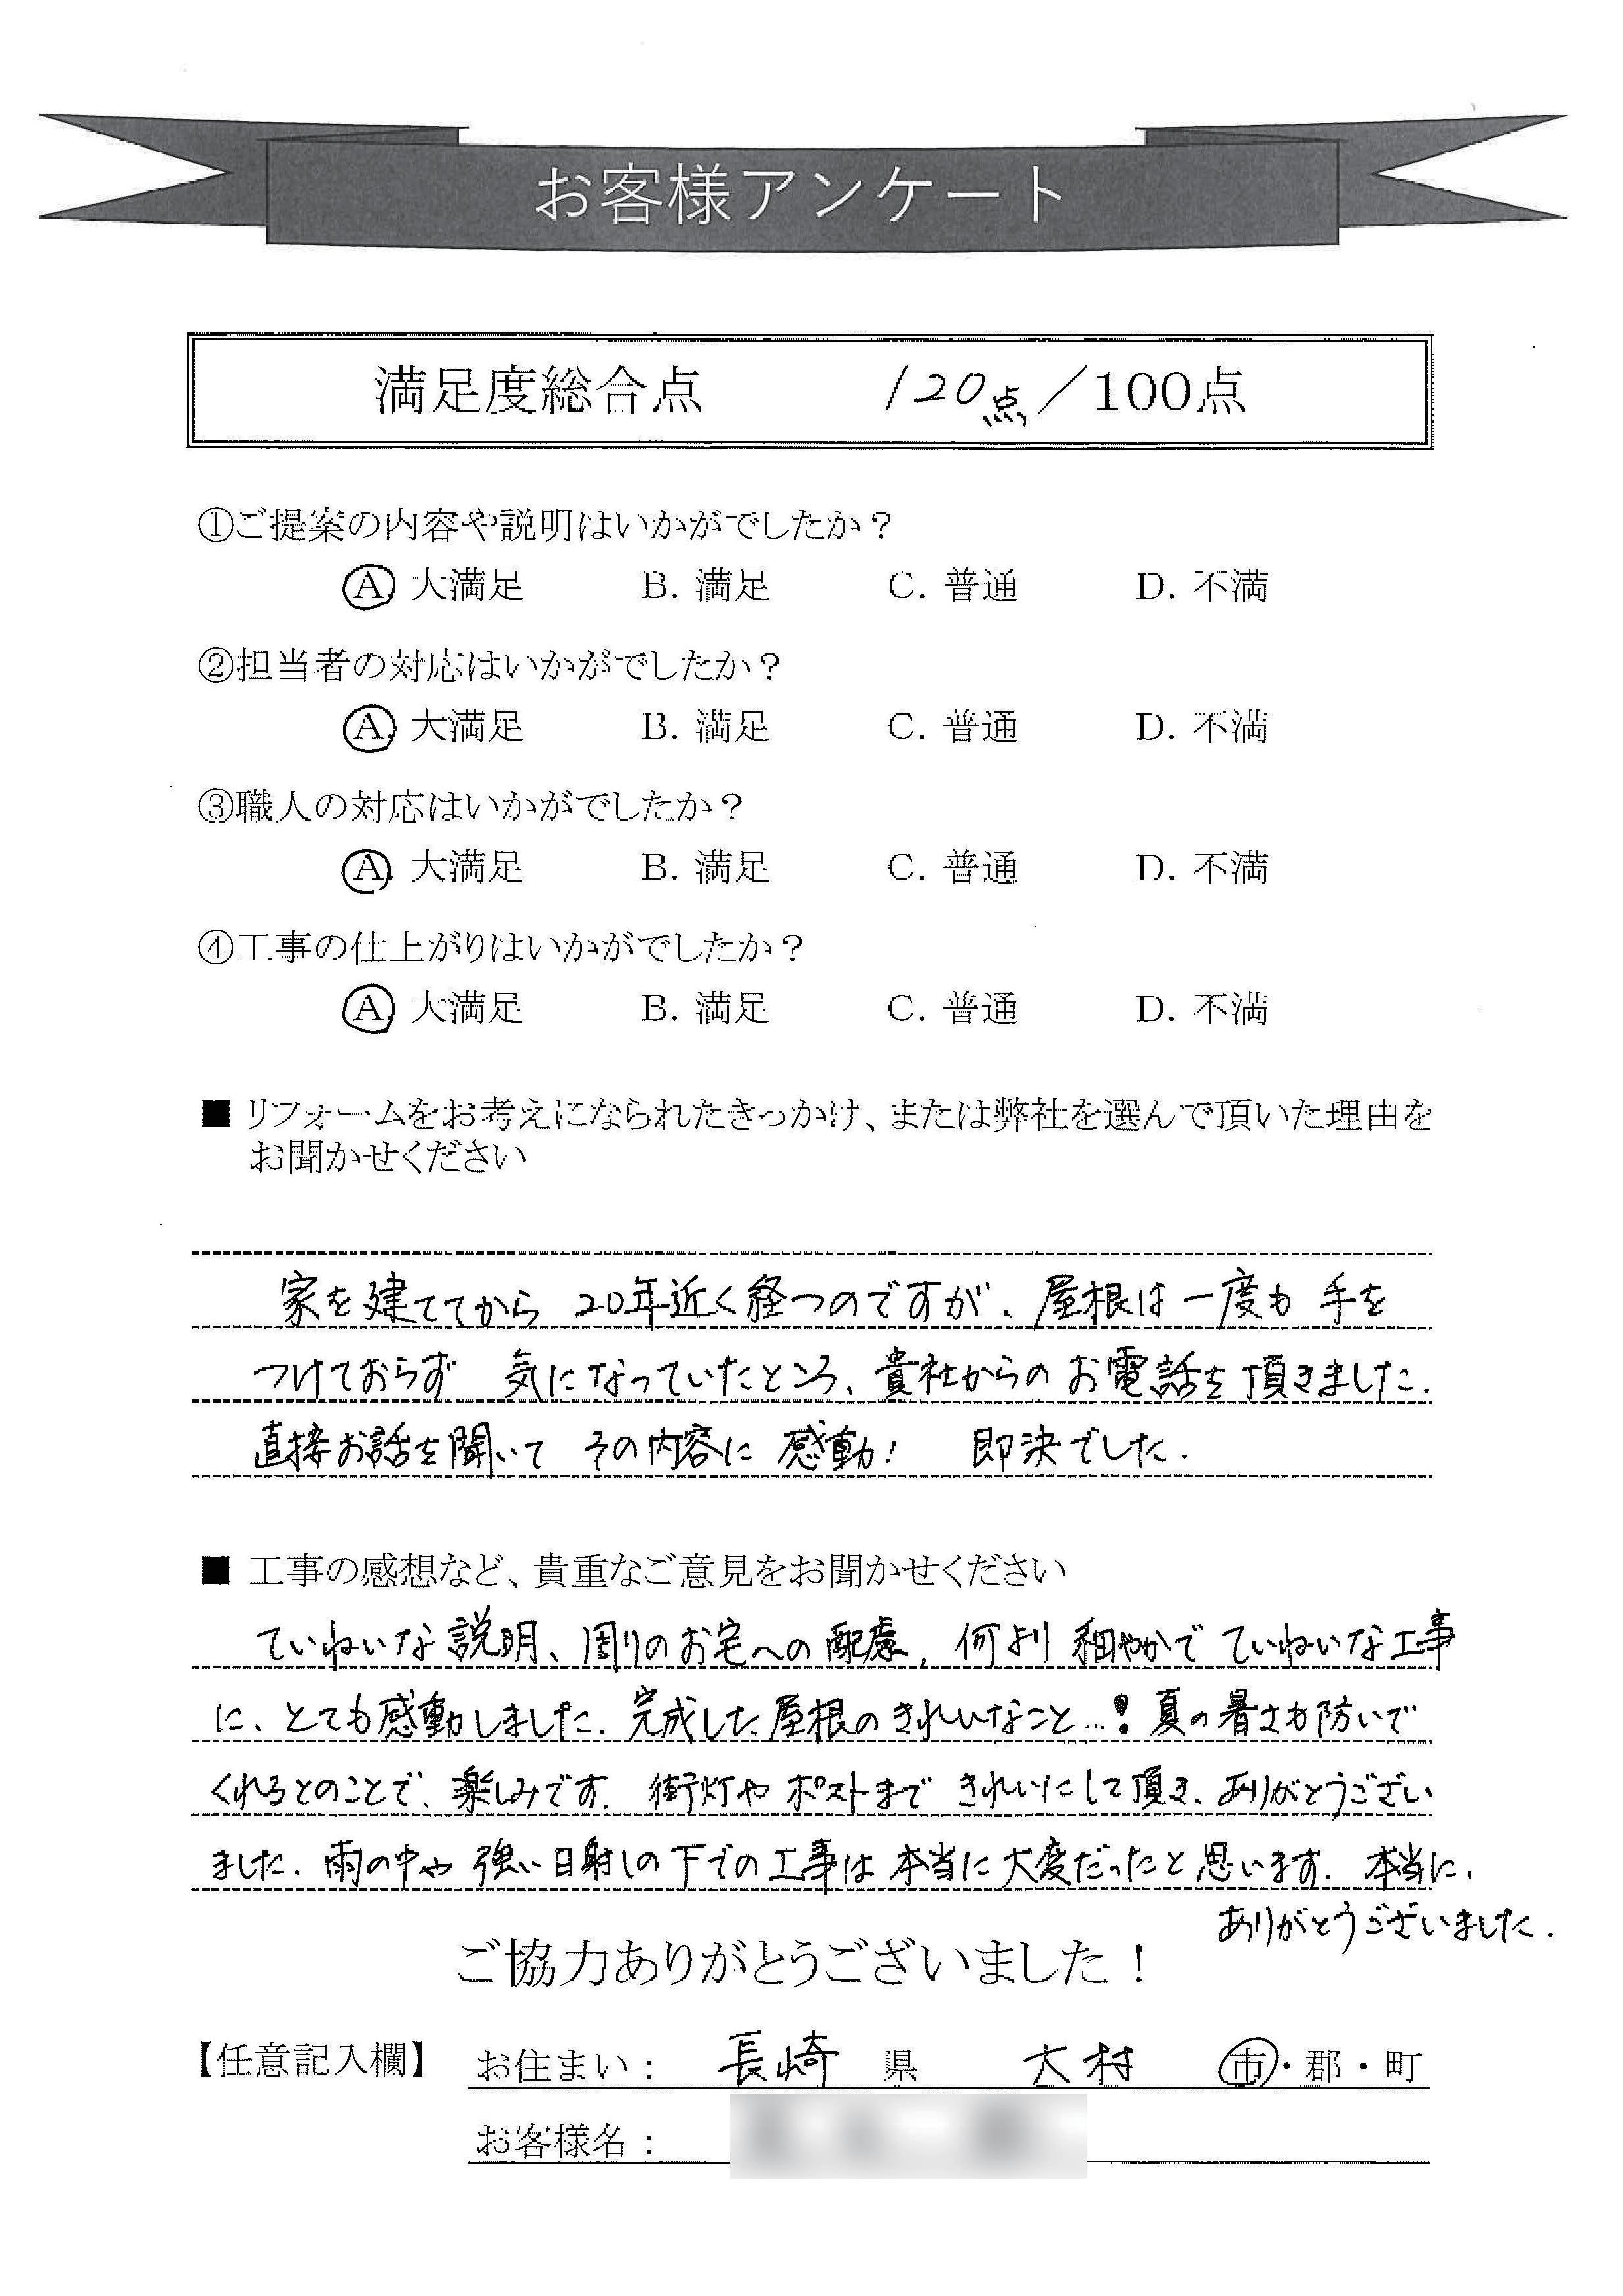 お客様アンケート
満足度総合点 120点／100点
①ご提案の内容や説明はいかがでしたか？
A 大満足 B. 満足 C. 普通 D. 不満
②担当者の対応はいかがでしたか？
A. 大満足 B. 満足 C. 普通 D. 不満
③職人の対応はいかがでしたか？
A. 大満足 B. 満足 C. 普通 D. 不満
④工事の仕上がりはいかがでしたか？
A. 大満足 B. 満足 C. 普通 D. 不満
■ リフォームをお考えになられたきっかけ、または弊社を選んで頂いた理由を
お聞かせください
家を建ててから 20年近く経つのですが、屋根は一度も 手を
つけておらず 気になっていたところ、貴社からの お電話を頂きました.
直接お話を聞いて その内容に 感動! 即決でした.
■ 工事の感想など、貴重なご意見をお聞かせください
ていねいな説明、周りのお宅への配慮、何より 細やかで ていねいな工事
に、とても感動しました. 完成した屋根のきれいなこと…! 夏の暑さも防いで
くれるとのことで、楽しみです. 街灯や ポストまで きれいにして頂き、ありがとうござい
ました. 雨の中や 強い日射しの下での工事は 本当に大変だったと思います. 本当に、
ありがとうございました.
ご協力ありがとうございました！
【任意記入欄】 お住まい： 長崎 県 大村 市・郡・町
お客様名：